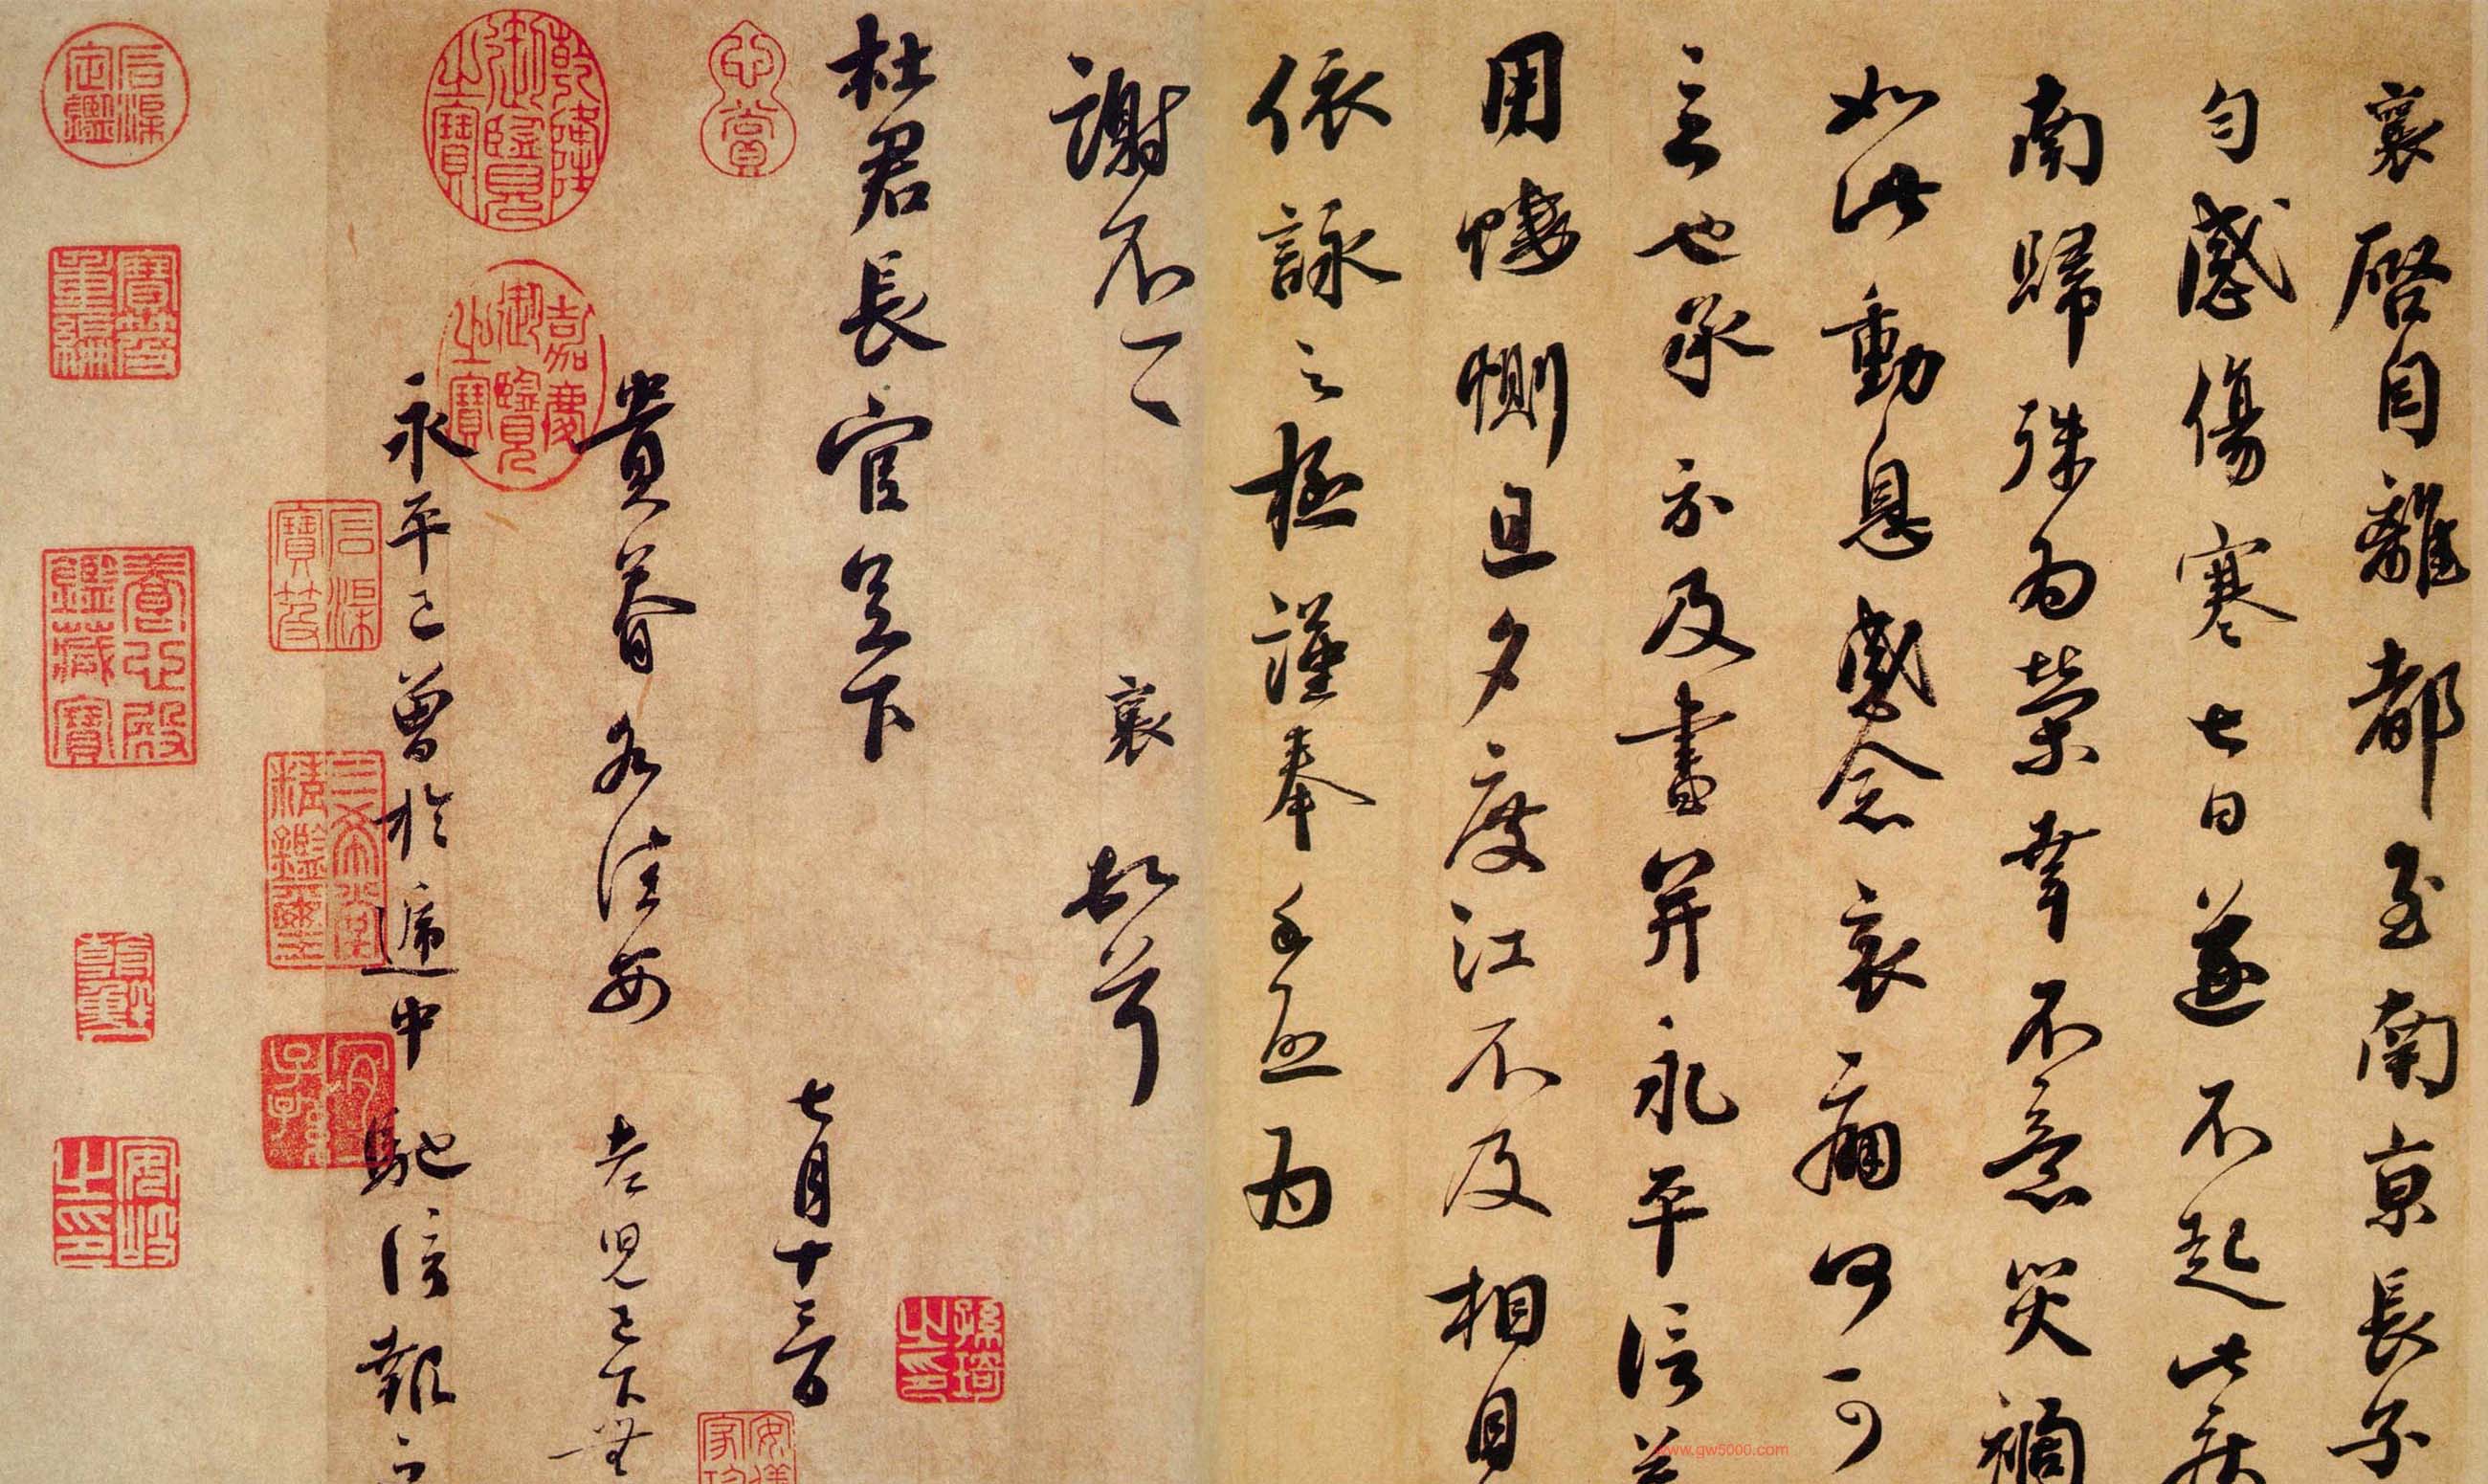 襄啓自離都至南京長子
匀感傷寒七日遂不起此疾
南歸殊爲榮幸不意災禍
如此動息感念哀痛何可
言也承示及書并永平信益
用悽惻旦夕度江不及相見
依詠之極謹奉手啓爲
謝不一一 襄 頓首
杜君長官足下
七月十三日
貴眷各佳安 老兒已下無
永平已曾於遞中馳信報之
乾隆御覽之寶
嘉慶御覽之寶
心賞
石渠定鑑
寶笈重編
養心殿鑑藏寶
石渠寶笈
三希堂精鑑璽
宜子孫
安岐之印
孫琦之印
www.gw5000.com